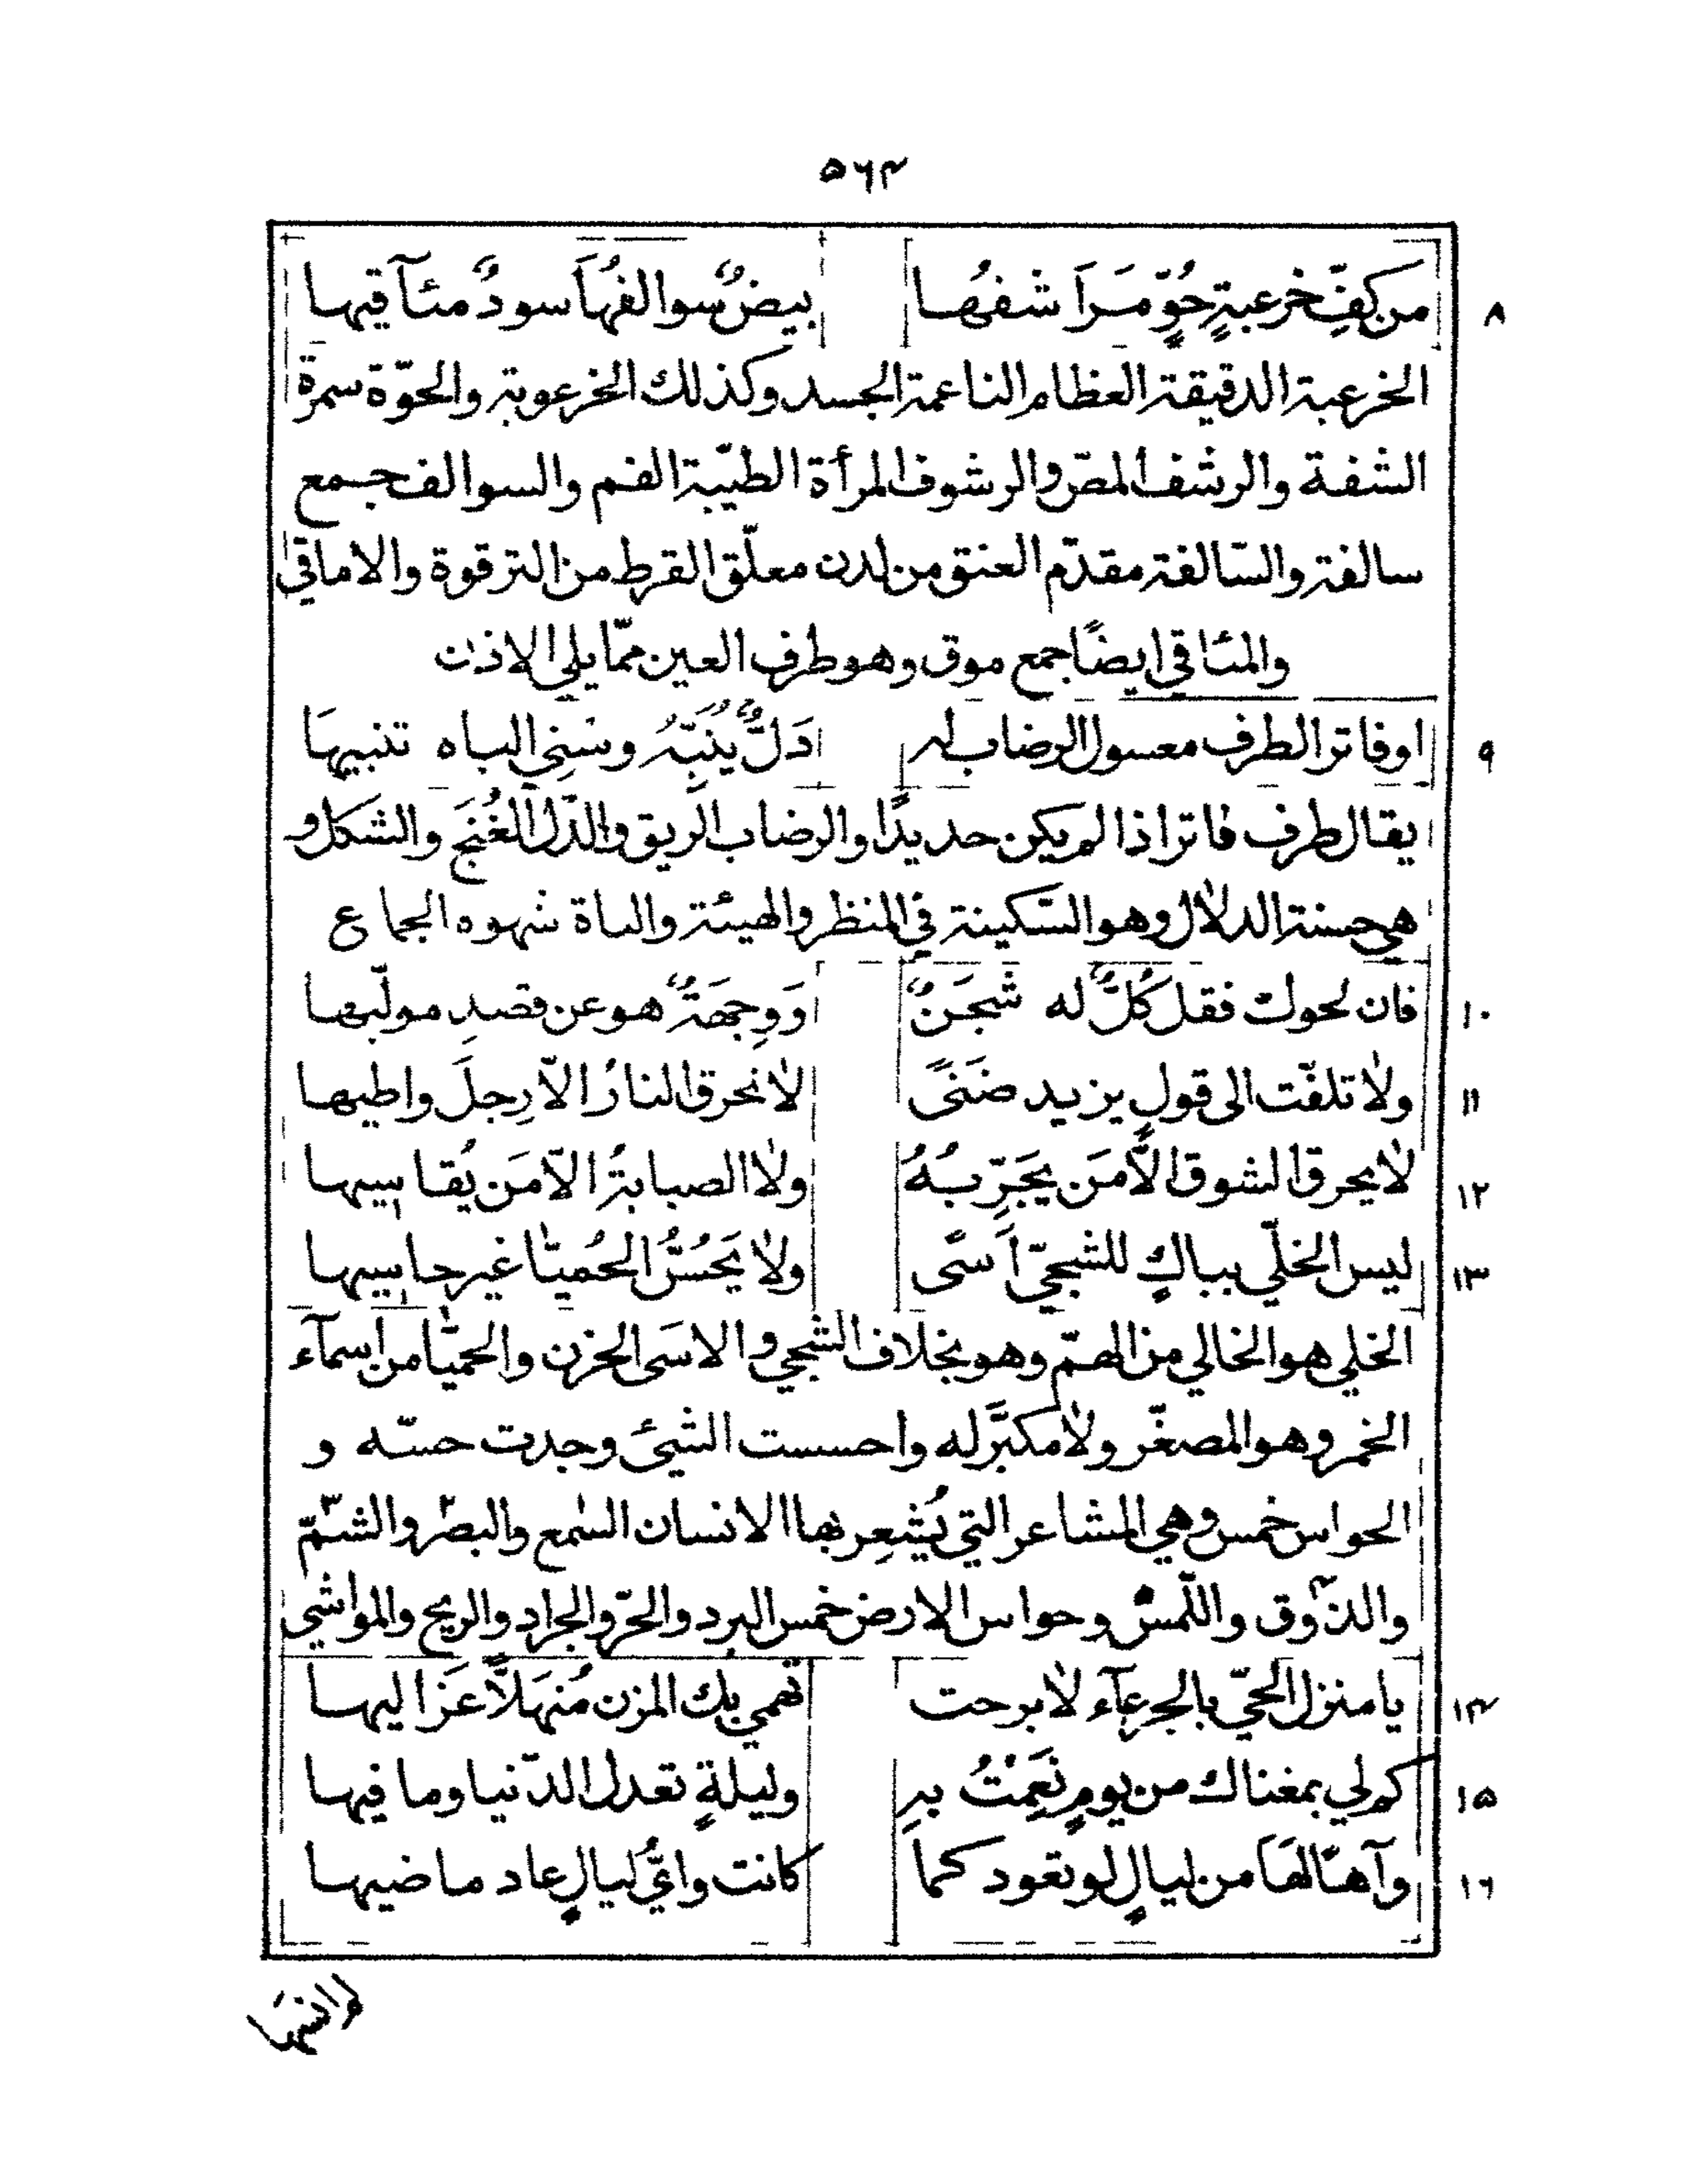 ٥٦٤
٨ من كفِّ خرعبةٍ حُوٍّ مَرَاشفُها بيضٌ سوالفُهَا سودٌ مئآقيها
الخرعبة الدقيقة العظام الناعمة الجسد وكذلك الخرعوبة والحوّة سمرة
الشفة والرشف المصّ والرشوف المرأة الطيّبة الفم والسوالف جمع
سالفة والسّالفة مقدّم العنق من لدن معلّق القرط من الترقوة والاماقي
والمئاقي ايضًا جمع موق وهو طرف العين ممّا يلي الاذن
٩ اوفاتر الطرف معسول الرضاب له دَلٌّ يُنَبِّهُ وسَنِي الباه تنبيهَا
يقال طرف فاتر اذا لم يكن حديدًا والرضاب الريق والدّل الغُنَج والشَكل و
هي حسنة الدلال وهو السّكينة في المنظر والهيئة والباة شهوه الجماع
١٠ فان لحوك فقل كُلٌّ له شَجَنٌ وَوِجهَةٌ هو عن قصدٍ مولّيها
١١ ولا تلفّت الى قولٍ يزيد ضَنَىً لا تحرق النارُ الّا رِجلَ واطيها
١٢ لا يحرق الشوق الّا مَن يجَرِّبُهُ ولا الصبابةُ الّا مَن يُقاسيها
١٣ ليس الخلّي بباكٍ للشجيّ اَسًى ولا يَحُسُّ الحُميّا غير حاسيها
الخلي هو الخالي من الهمّ وهو بخلاف الشجي والاسَى الحزن والحميّا من اسمآء
الخمر وهو المصغّر ولا مكبَّر له واحسست الشيئ وجدت حسّه و
الحواس خمس وهي المشاعر التي يُشعِر بها الانسان السمع والبصر والشمّ
والذّوق واللّمس وحواس الارض خمس البرد والحرّ والجراد والريح والمواشي
١٤ يا منزل الحيّ بالجرعآء لا برحت تهمي بك المزن مُنهَلًّا عَزَاليها
١٥ كم لي بمغناك من يومٍ نَعِمْتُ به وليلةٍ تعدل الدّنيا وما فيها
١٦ وآهًا لهَا من ليالٍ لو تعود كما كانت وايُّ ليالٍ عاد ماضيها